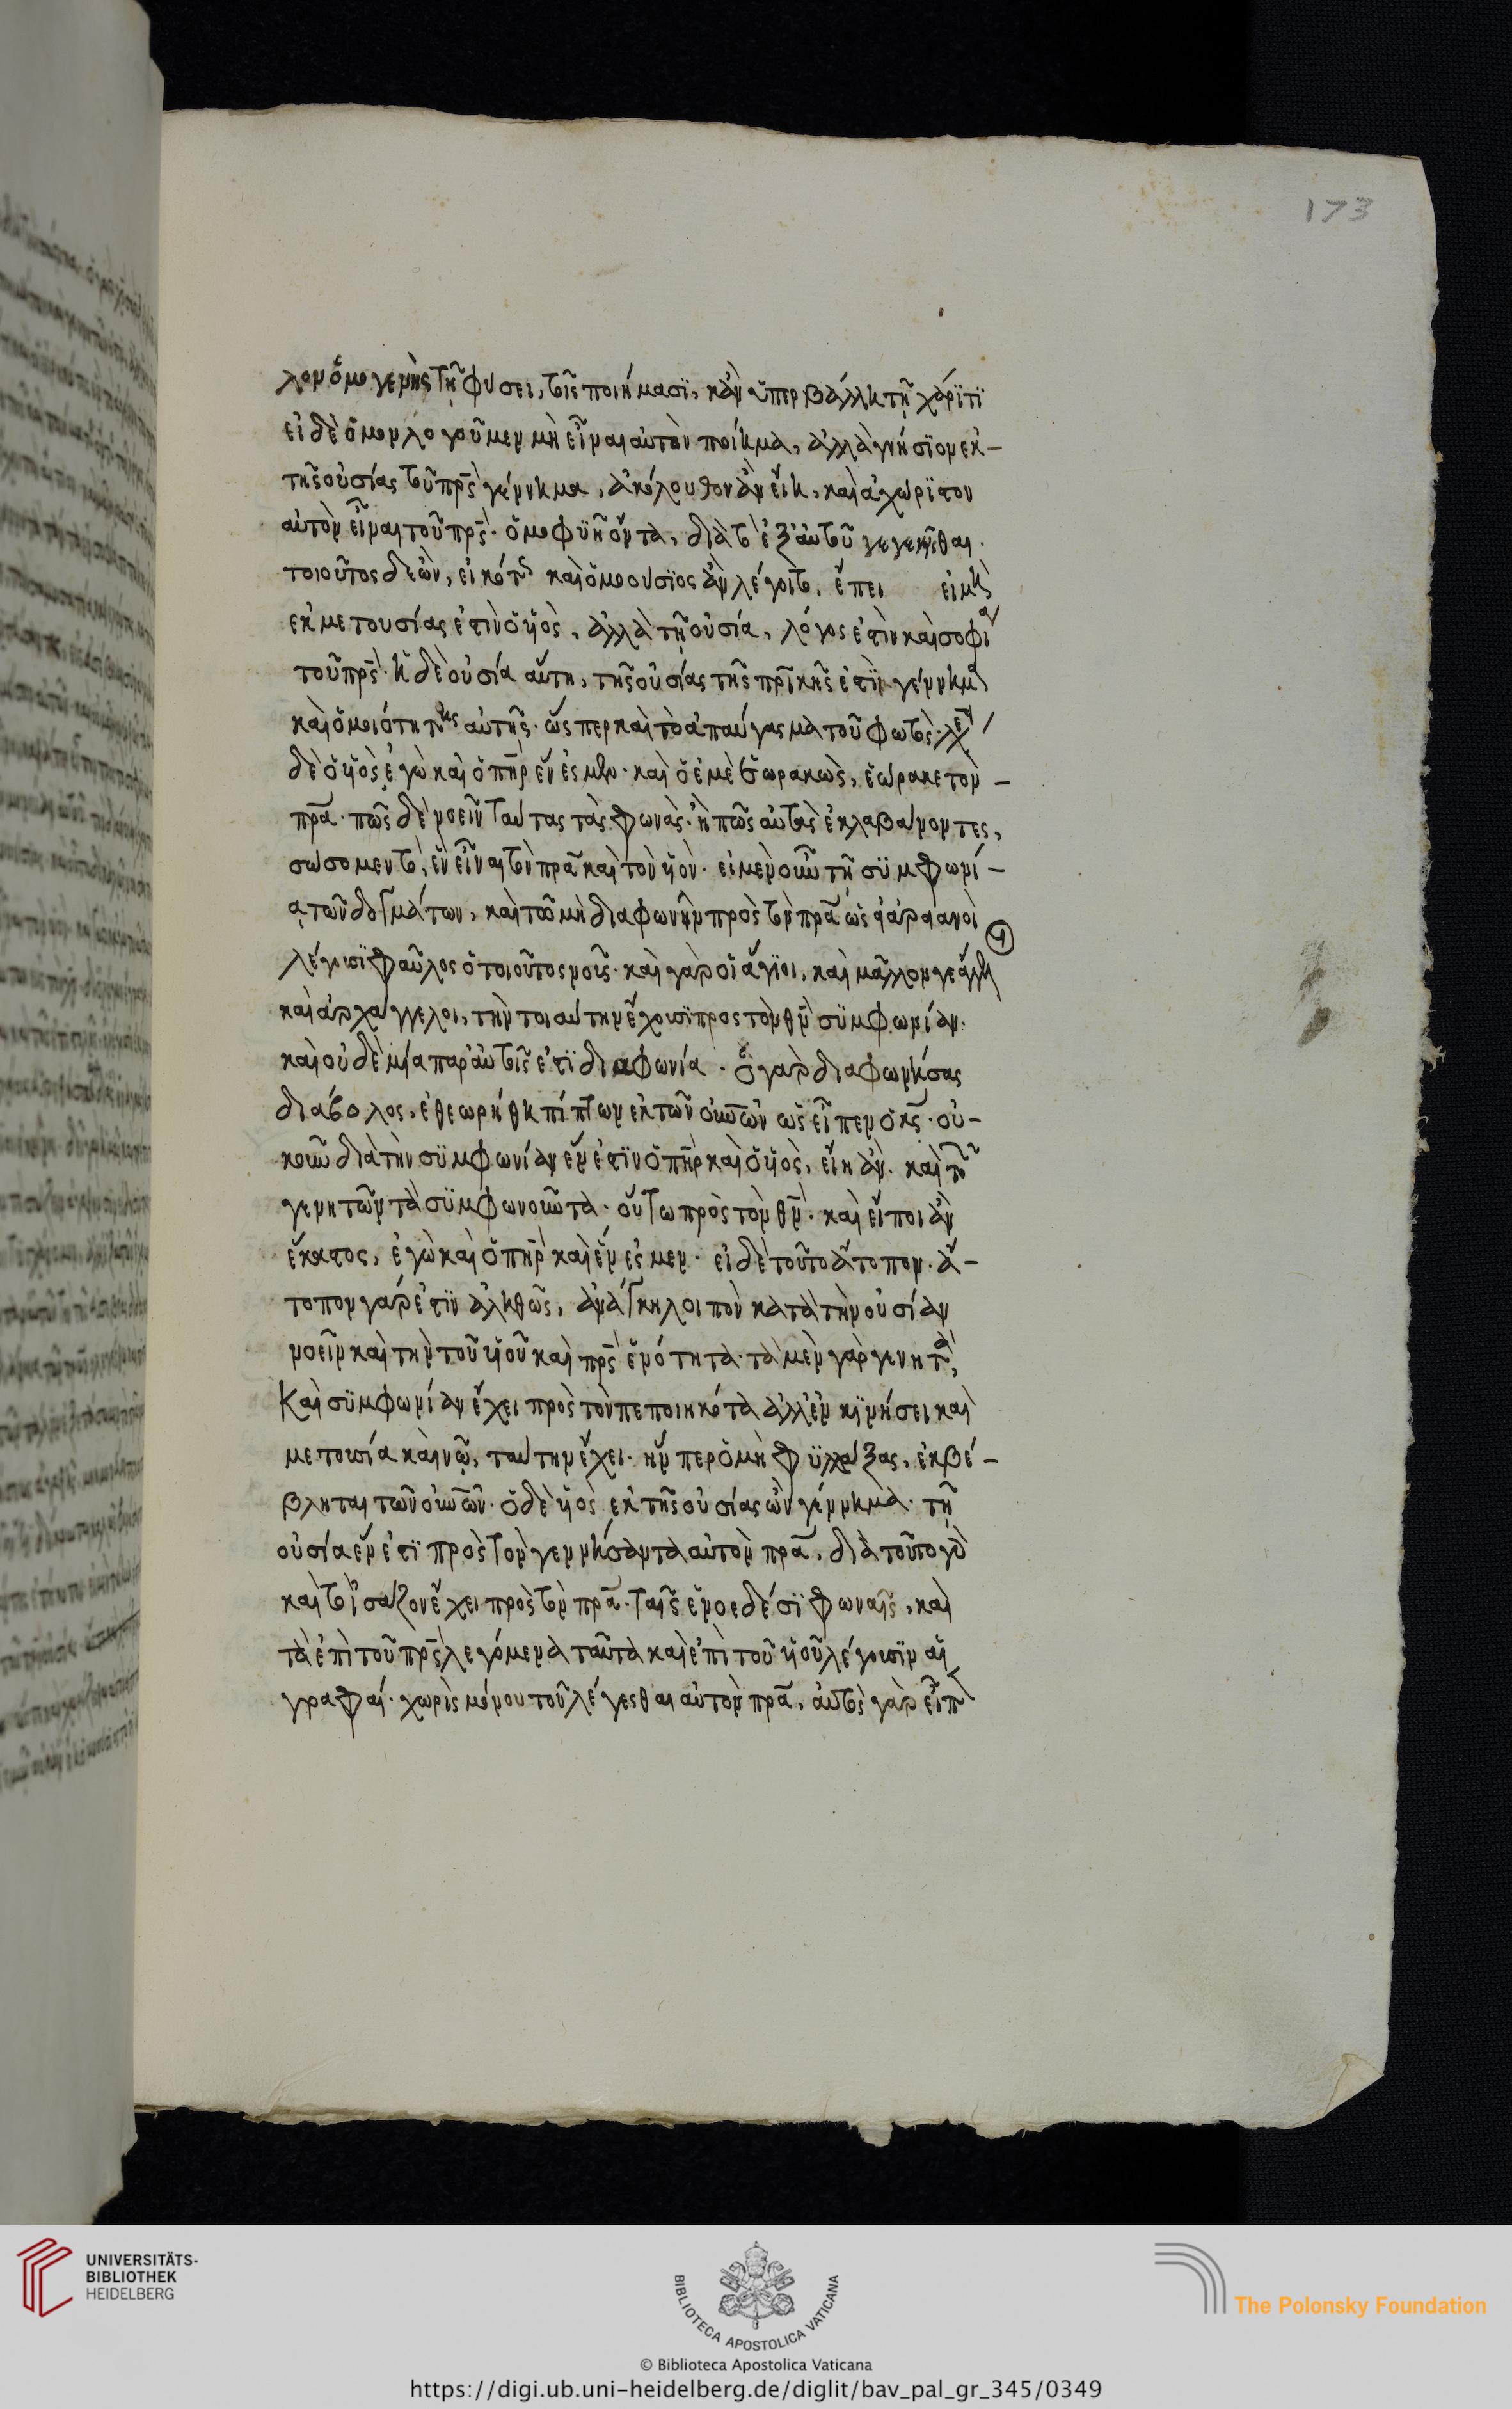 λον ὁμογενὴς τῆ φύσει, τοῖς ποιήμασϊ, κἂν ὑπερβάλλη τῆ χάρϊτϊ
εἰ δὲ ὁμολογοῦμεν μὴ εἶναι αὐτὸν ποίημα, ἀλλὰ γνήσϊον ἐκ –
τῆς οὐσίας τοῦ πρ̅ς γέννημα, ἀκόλουθον ἂν εἴη, καὶ ἀχώρϊστον
αὐτὸν εἶναι τοῦ πρ̅ς· ὁμοφϋῆ ὄντα, διὰ τὸ ἐξ αὐτοῦ γεγενῆσθαι·
τοιοῦτος δὲ ὢν, εἰκότως καὶ ὁμοουσϊος ἂν λέγοιτο. ἔπει εἰ μὴ
ἐκ μετουσίας ἐστὶν ὁ υἱὸς, ἀλλὰ τῆ οὐσία, λόγος ἐστὶν καὶ σοφία
τοῦ πρ̅ς· ἡ δὲ οὐσία αὕτη, τῆς οὐσίας τῆς πρ̅ικῆς ἐστὶ γέννημα
καὶ ὁμοιότητος αὐτῆς· ὥσπερ καὶ τὸ ἀπαύγασμα τοῦ φωτὸς· λέγει
δὲ ὁ υἱὸς ἐγὼ καὶ ὁ πη̅ρ ἕν ἐσμεν· καὶ ὁ ἐμὲ ἑωρακὼς, ἑώρακε τὸν –
πρ̅α· πῶς δὲ νοεῖν ταύτας τὰς φωνὰς· ἢ πῶς αὐτὰς ἐκλαβανοντες,
σώσομεν τὸ, ἓν εἶναι τὸν πρ̅α καὶ τὸν υἱὸν· εἰ μὲν οὖν τῆ σϋμφωνί –
α τῶν δογμάτων, καὶ τῶ μὴ διαφωνεῖν πρὸς τὸν πρ̅α ὡς οἱ ἀρϊανοὶ
λέγουσϊ φαῦλος ὁ τοιοῦτος νοῦς· καὶ γὰρ οἱ ἅγϊοι, καὶ μᾶλλον γε ἄγγελοι
καὶ ἀρχάγγελοι, τὴν τοιαύτην ἔχουσϊ πρὸς τὸν θν̅ σϋμφωνίαν·
καὶ οὐδὲ μία παρ' αὐτοῖς ἐστϊ διαφωνία· ὁ γὰρ διαφωνήσας
διάβολος, ἐθεωρήθη πίπτων ἐκ τῶν οὐν̅ῶν ὡς εἶπεν ὁ κς̅· οὐ –
κοῦν διὰ τὴν σϋμφωνίαν ἕν ἐστϊν ὁ πη̅ρ καὶ ὁ υἱὸς, εἴη ἂν· καὶ τῶν
γενητῶν τὰ σϋμφωνοῦντα· οὕτω πρὸς τὸν θν̅· καὶ εἴποι ἂν
ἕκαστος, ἐγὼ καὶ ὁ πη̅ρ καὶ ἕν ἐσμεν· εἰ δὲ τοῦτο ἄτοπον· ἄ –
τοπον γὰρ ἐστϊν ἀληθῶς, ἀνάγκη λοιπὸν κατὰ τὴν οὐσίαν
νοεῖν καὶ τὴν τοῦ υἱοῦ καὶ πρ̅ς ἑνότητα· τὰ μὲν γὰρ γενητὰ,
Καὶ σϋμφωνίαν ἔχει πρὸς τὸν πεποιηκότα ἀλλ' ἐν κϊνήσει καὶ
μετουσία καὶ νῶ, ταύτην ἔχει· ἥν περ ὁ μὴ φϋλάξας, ἐκβέ –
βληται τῶν οὐν̅ῶν· ὁ δὲ υἱὸς ἐκ τῆς οὐσίας ὢν γέννημα· τῆ
οὐσία ἕν ἐστϊ πρὸς τὸν γεννήσαντα αὐτὸν πρ̅α, διὰ τοῦτο γὰρ
καὶ τὸ ἰσάζον ἔχει πρὸς τὸν πρ̅α· ταῖς ἑνοεδέσϊ φωναῖς, καὶ
τὰ ἐπὶ τοῦ πρ̅ς λεγόμενα ταῦτα καὶ ἐπὶ τοῦ υἱοῦ λέγουσϊν αἱ
γραφαί· χωρὶς μόνου τοῦ λέγεσθαι αὐτὸν πρ̅α, αὐτὸς γὰρ εἶπε
173
UNIVERSITÄTS-
BIBLIOTHEK
HEIDELBERG
BIBLIOTECA APOSTOLICA VATICANA
The Polonsky Foundation
© Biblioteca Apostolica Vaticana
https://digi.ub.uni-heidelberg.de/diglit/bav_pal_gr_345/0349